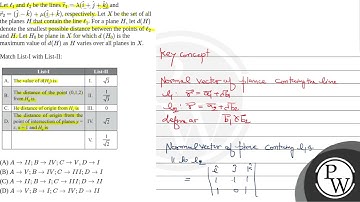 Let ℓ₁ and ℓ₂ be the lines r⃗₁ = λ(î + ĵ + k̂) and
r⃗₂ = (ĵ − k̂) + μ(î + k̂), respectively. Let X be the set of all
the planes H that contain the line ℓ₁. For a plane H, let d(H)
denote the smallest possible distance between the points of ℓ₂
and H. Let H₀ be plane in X for which d(H₀) is the
maximum value of d(H) as H varies over all planes in X.
Match List-I with List-II:
List-I List-II
A. The value of d(H₀) is I. √3
B. The distance of the point (0,1,2) from H₀ is II. 1/√3
C. The distance of origin from H₀ is III. 0
D. The distance of origin from the point of intersection of planes y = z, x = 1 and H₀ is IV. √2
V. 1/√2
(A) A → II; B → IV; C → V, D → I
(B) A → V; B → IV; C → III; D → I
(C) A → II; B → I; C → III; D → II
(D) A → V; B → I; C → IV; D → II
Key concept
Normal vector of plance containg the line
l₁: r⃗ = a⃗₁ + db⃗₁
l₂: r⃗ = a⃗₂ + db⃗₂
b⃗₁ × b⃗₂
Normal vector of plane containg l₁ &
|| to l₂
= | î ĵ k̂ |
1 1 1
1 0 1
PW